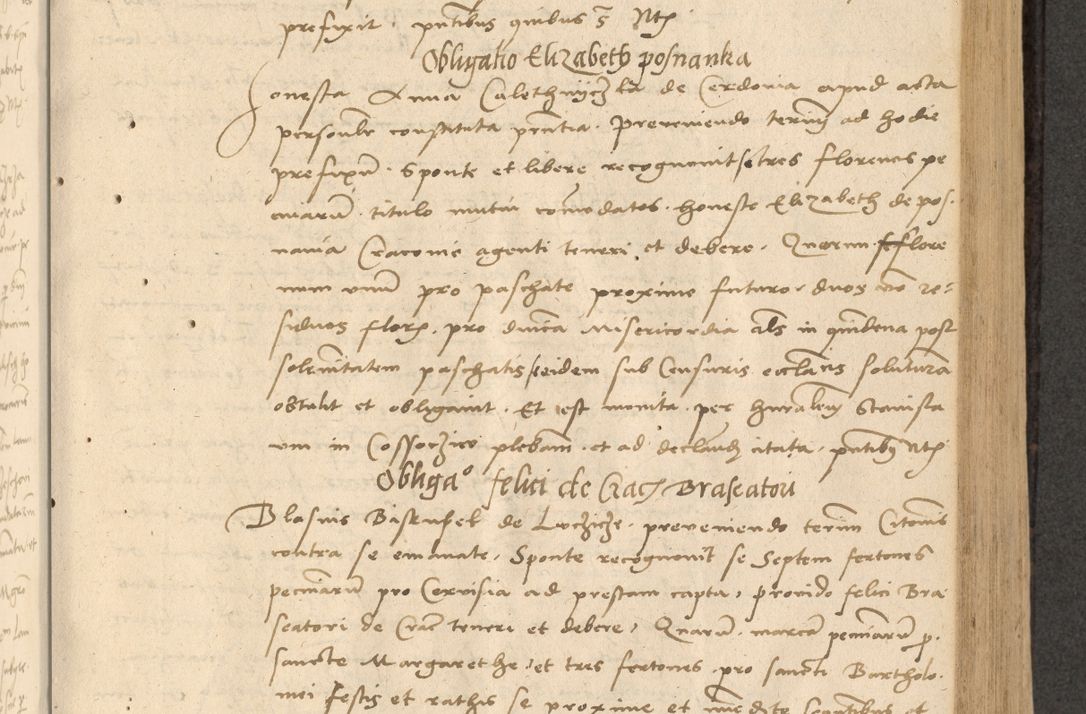 prefixit. pntibus quibus s. Ntꝭ
Obligatio Elizabeth posnanka
Honesta Anna Calethnijczka de Cerdonia apud acta
personlr constituta pntia. Preveniendo termi ad hodie
prefixu. Sponte et libere recognouit se tres florenos pe
cuniaru. titulo mutui comodatos. honeste Elizabeth de pos.
nania Cracouie agenti teneri et debere. Quorum flore
num unu pro paschate proxime futuro. duos vo re=
siduos flor. pro dnica Misericordia als in quindena post
solemnitatem paschatis eidem sub Censuris ecclasticis soluturam
obtulit et obligauit. Et est monita. per honorabilem Stanisla
um in Cossoczice plebam. et ad declarand citata. pntibus Ntꝭ
Obligao felici de Crac Braseatori
Blasius Baskufel de Luczicze. preveniendo termi Citonis
contra se emanate. Sponte recognouit se Septem fertones
pecuniaru pro Cervisia ad prestam capta, provido felici Bra
seatori de Crac teneri et debere, Quaru. marca pecuniaru p.
sancte Margarethe, et tres fertones. pro sancti Bartholo.
mei festis et rathis se proxime et inmedite sequentibus et